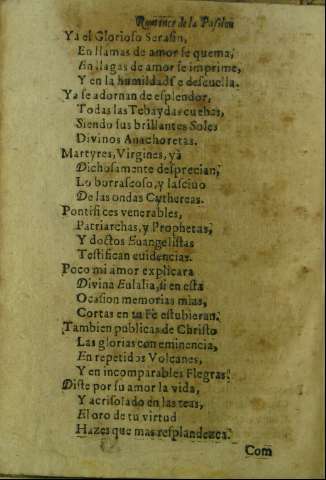 Romance de la Passion
Ya el Glorioso Serafin,
En llamas de amor se quema,
En llagas de amor se imprime,
Y en la humildad se descuella.
Ya se adornan de esplendor,
Todas las Tebaydas cuebas,
Siendo sus brillantes Soles
Divinos Anachoretas.
Martyres, Virgines, yà
Dichosamente desprecian,
Lo borrascoso, y lascivo
De las ondas Cythereas.
Pontifices venerables,
Patriarchas, y Prophetas,
Y doctos Euangelistas
Testifican euidencias.
Poco mi amor explicara
Divina Eulalia, si en esta
Ocasion memorias mias,
Cortas en tu Fè estubieran.
Tambien publicas de Christo
Las glorias con eminencia,
En repetidos Volcanes,
Y en incomparables Flegras.
Diste por su amor la vida,
Y acrisolado en las teas,
El oro de tu virtud
Hazes que mas resplandezca.
Com